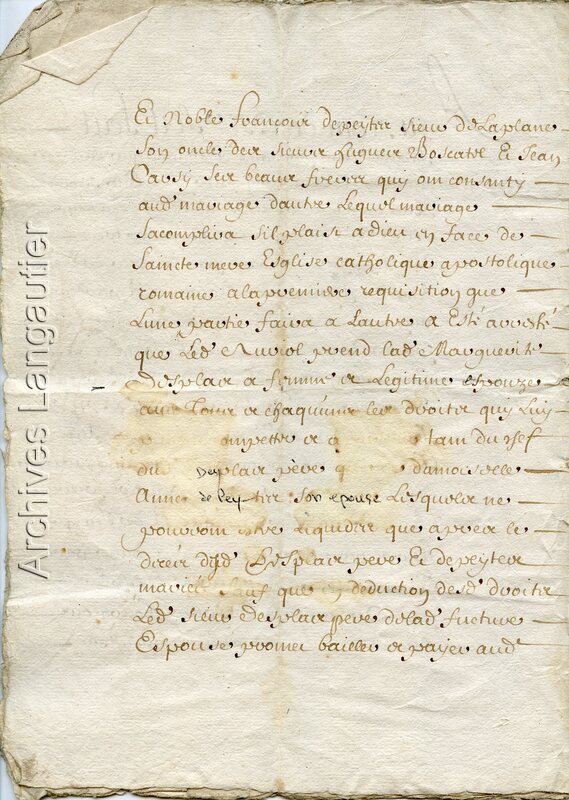 Et Noble françois depeyter sieur de Laplane
son oncle des sieurs Boscatel Et Jean
ses beaux freres quy ont consanty
aud mariage dautre Lequel mariage
sacomplira sil plaist a dieu en face de
saincte mere Esglise catholique apostolique
romaine a la premiere requisition que
Lune partie faira a Lautre a Esté aresté
que Led prend lad Marguerite
desplair a femme et Legitime espouze
aux tous et chaqu'uns les droits quy Luy
ompette et a tant du chef
du Desplair père damoiselle
Anne de Pey son epouse Lesquels ne
pouvront estre Liquides que apres le
déces dud Desplair pere Et depeyter
mariés sauf que en deduction desd droits
Led sieur desplair pere delad fucture
Espouse promet bailler et payer aud
Archives Langautier